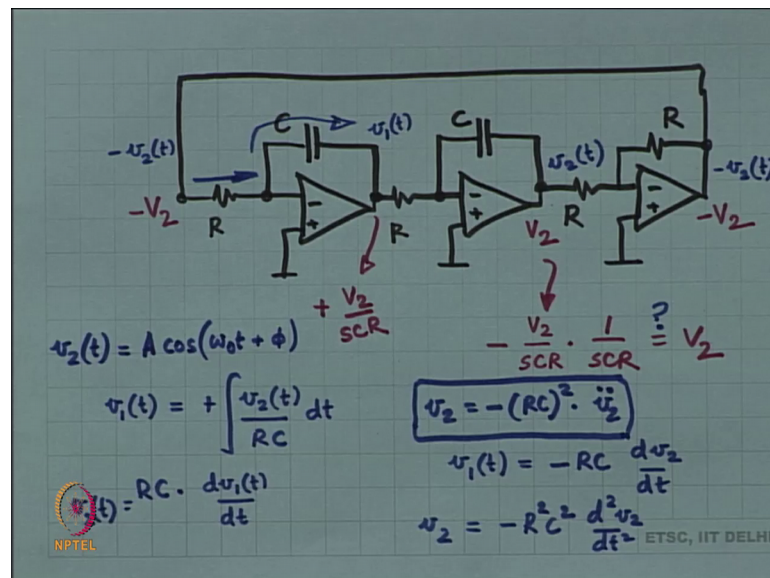 C v₁(t) C R
-v₂(t) v₂(t) -v₂(t)
-V₂ R R V₂ R -V₂
- + - + - +
+ V₂/SCR
- V₂/SCR · 1/SCR ≟ V₂
v₂(t) = A cos(ω₀t + φ)
v₁(t) = + ∫ v₂(t)/RC dt
v₂ = -(RC)² · v̈₂
v₁(t) = -RC dv₂/dt
(t) = RC · dv₁(t)/dt
v₂ = -R²C² d²v₂/dt²
NPTEL
ETSC, IIT DELHI